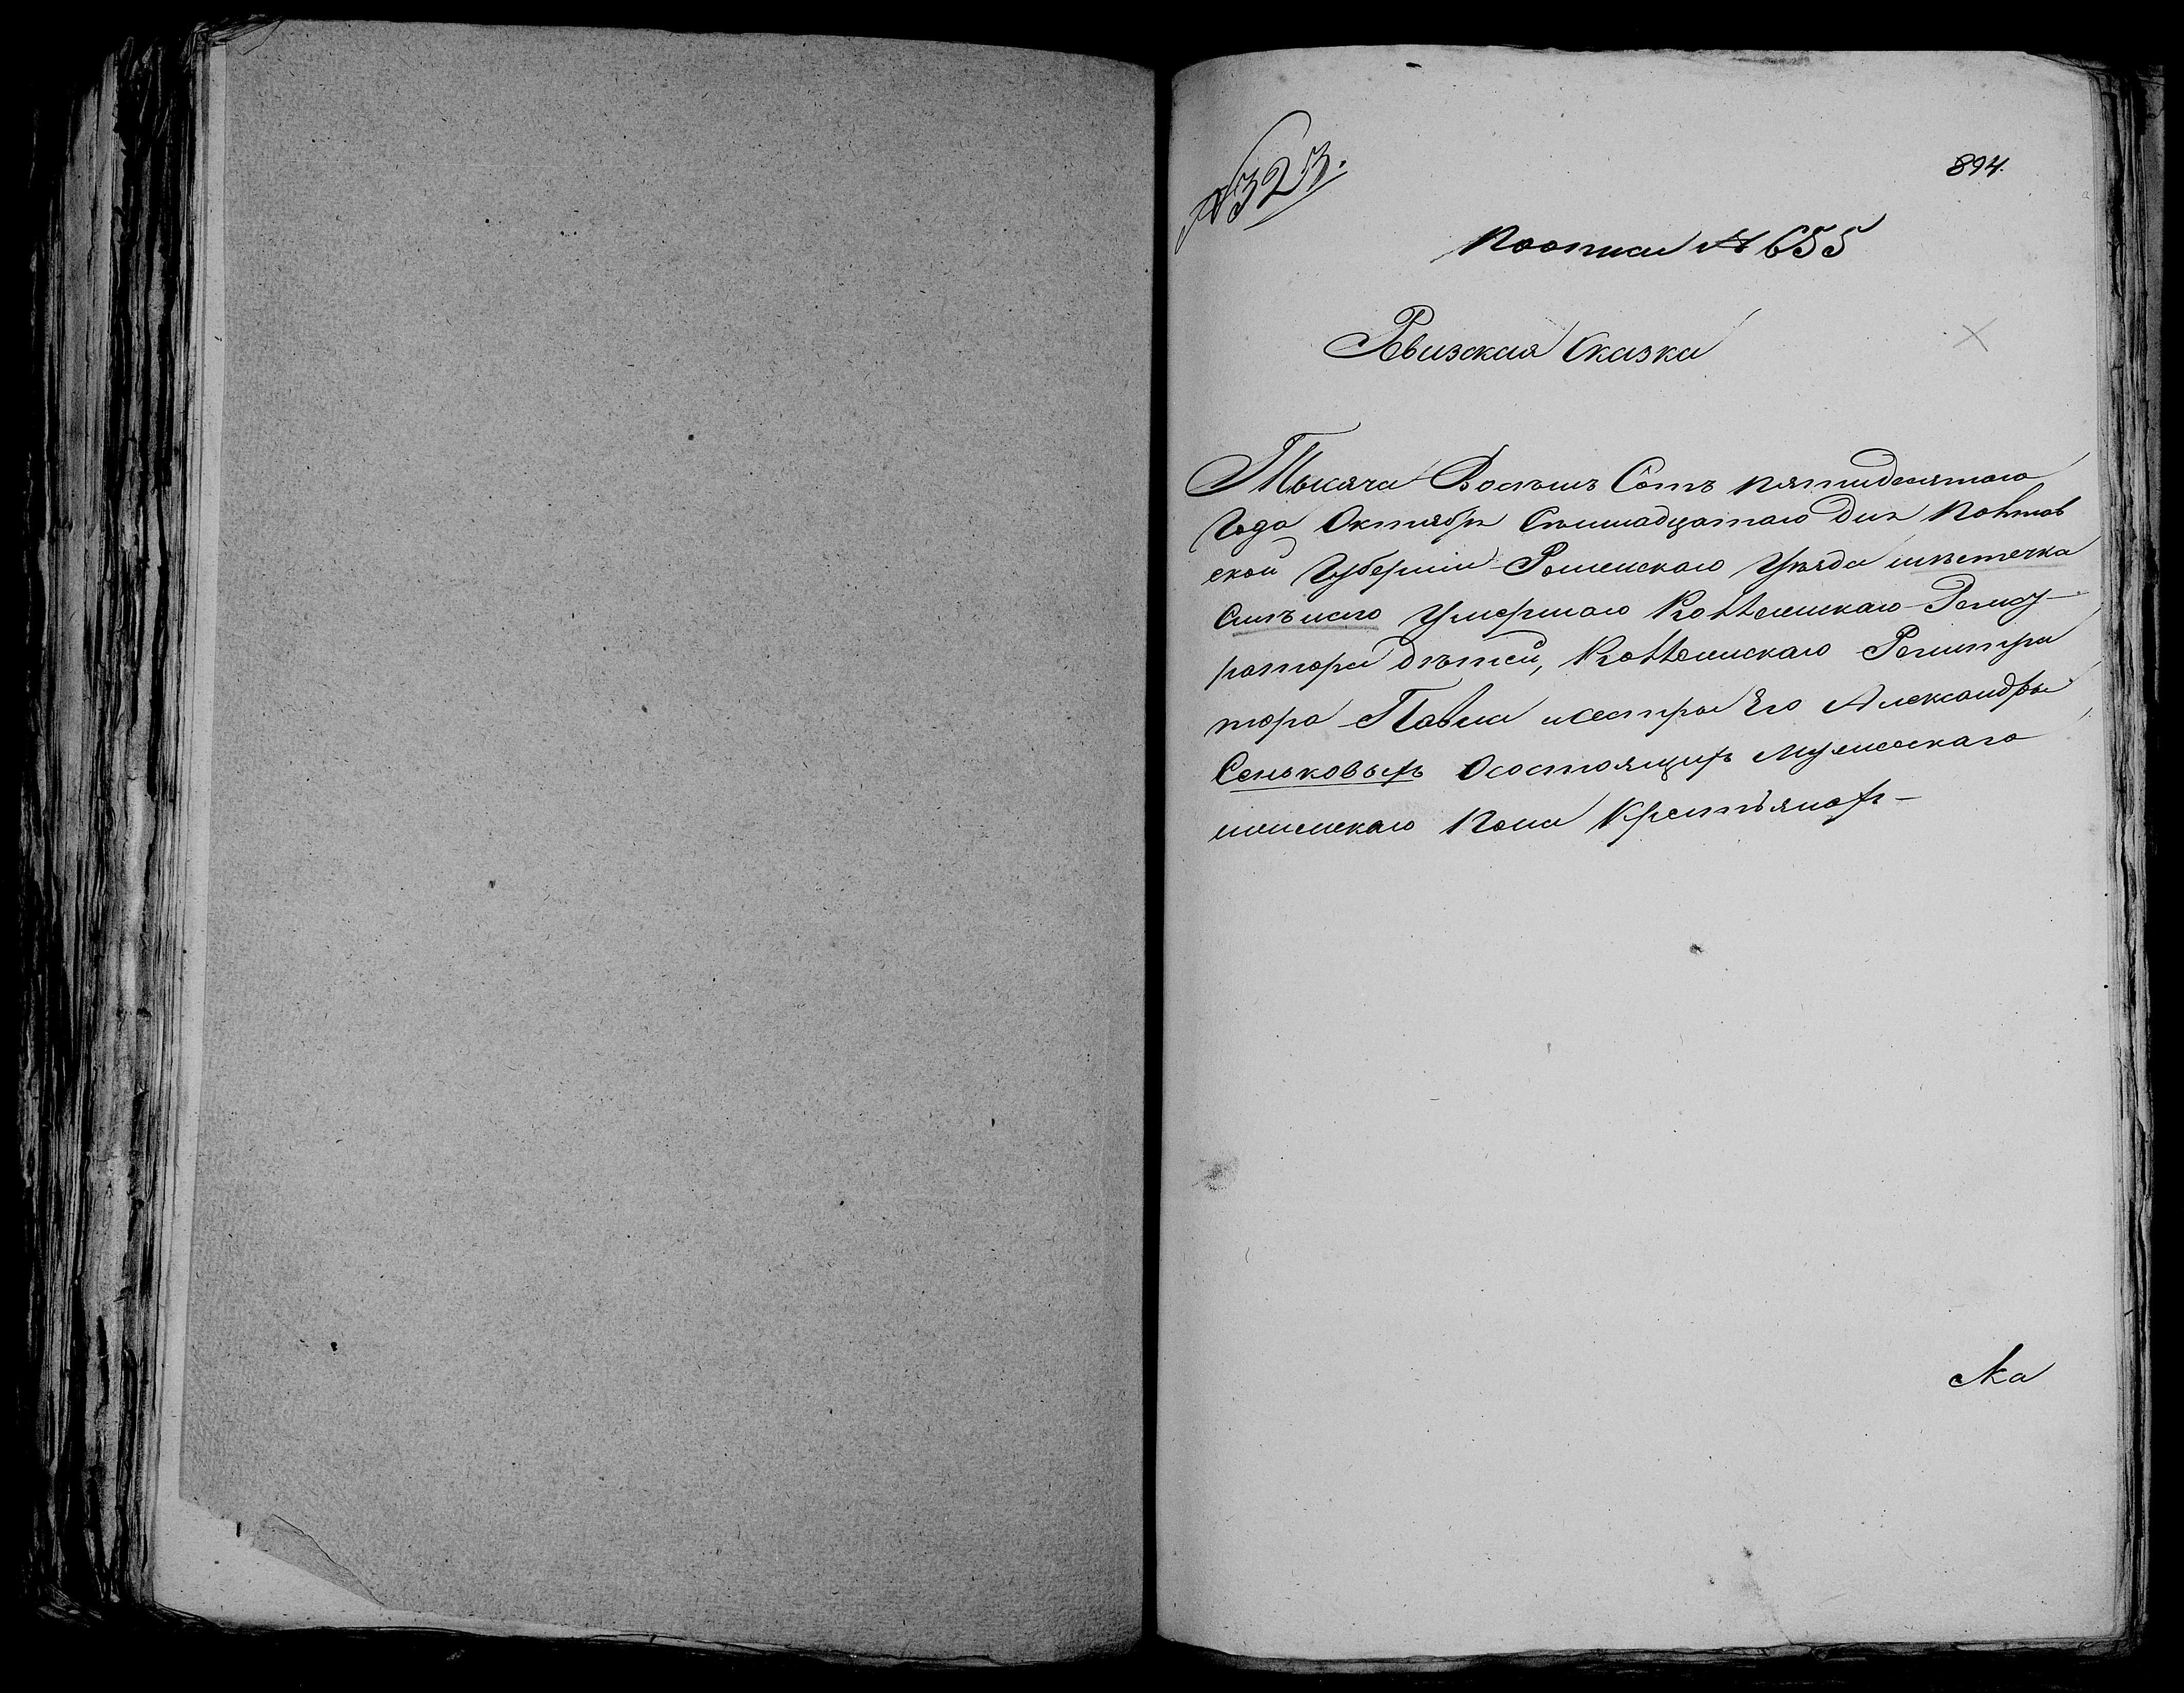 № 323.
894.
По описи № 655
Ревизская Сказка
Тысяча Восемь Сотъ пятидесятаго
Года Октября Семнадцатаго дня Полтав
ской Губерніи Роменскаго Уезда местечка
Смѣлаго Умершаго Коллежскаго Регист
ратора дѣтей, Коллежскаго Регистра
тора Павла исестры Его Александры
Сеньковыхъ Осостоящихъ Мужескаго
иженскаго Пола Крестьянахъ -
На